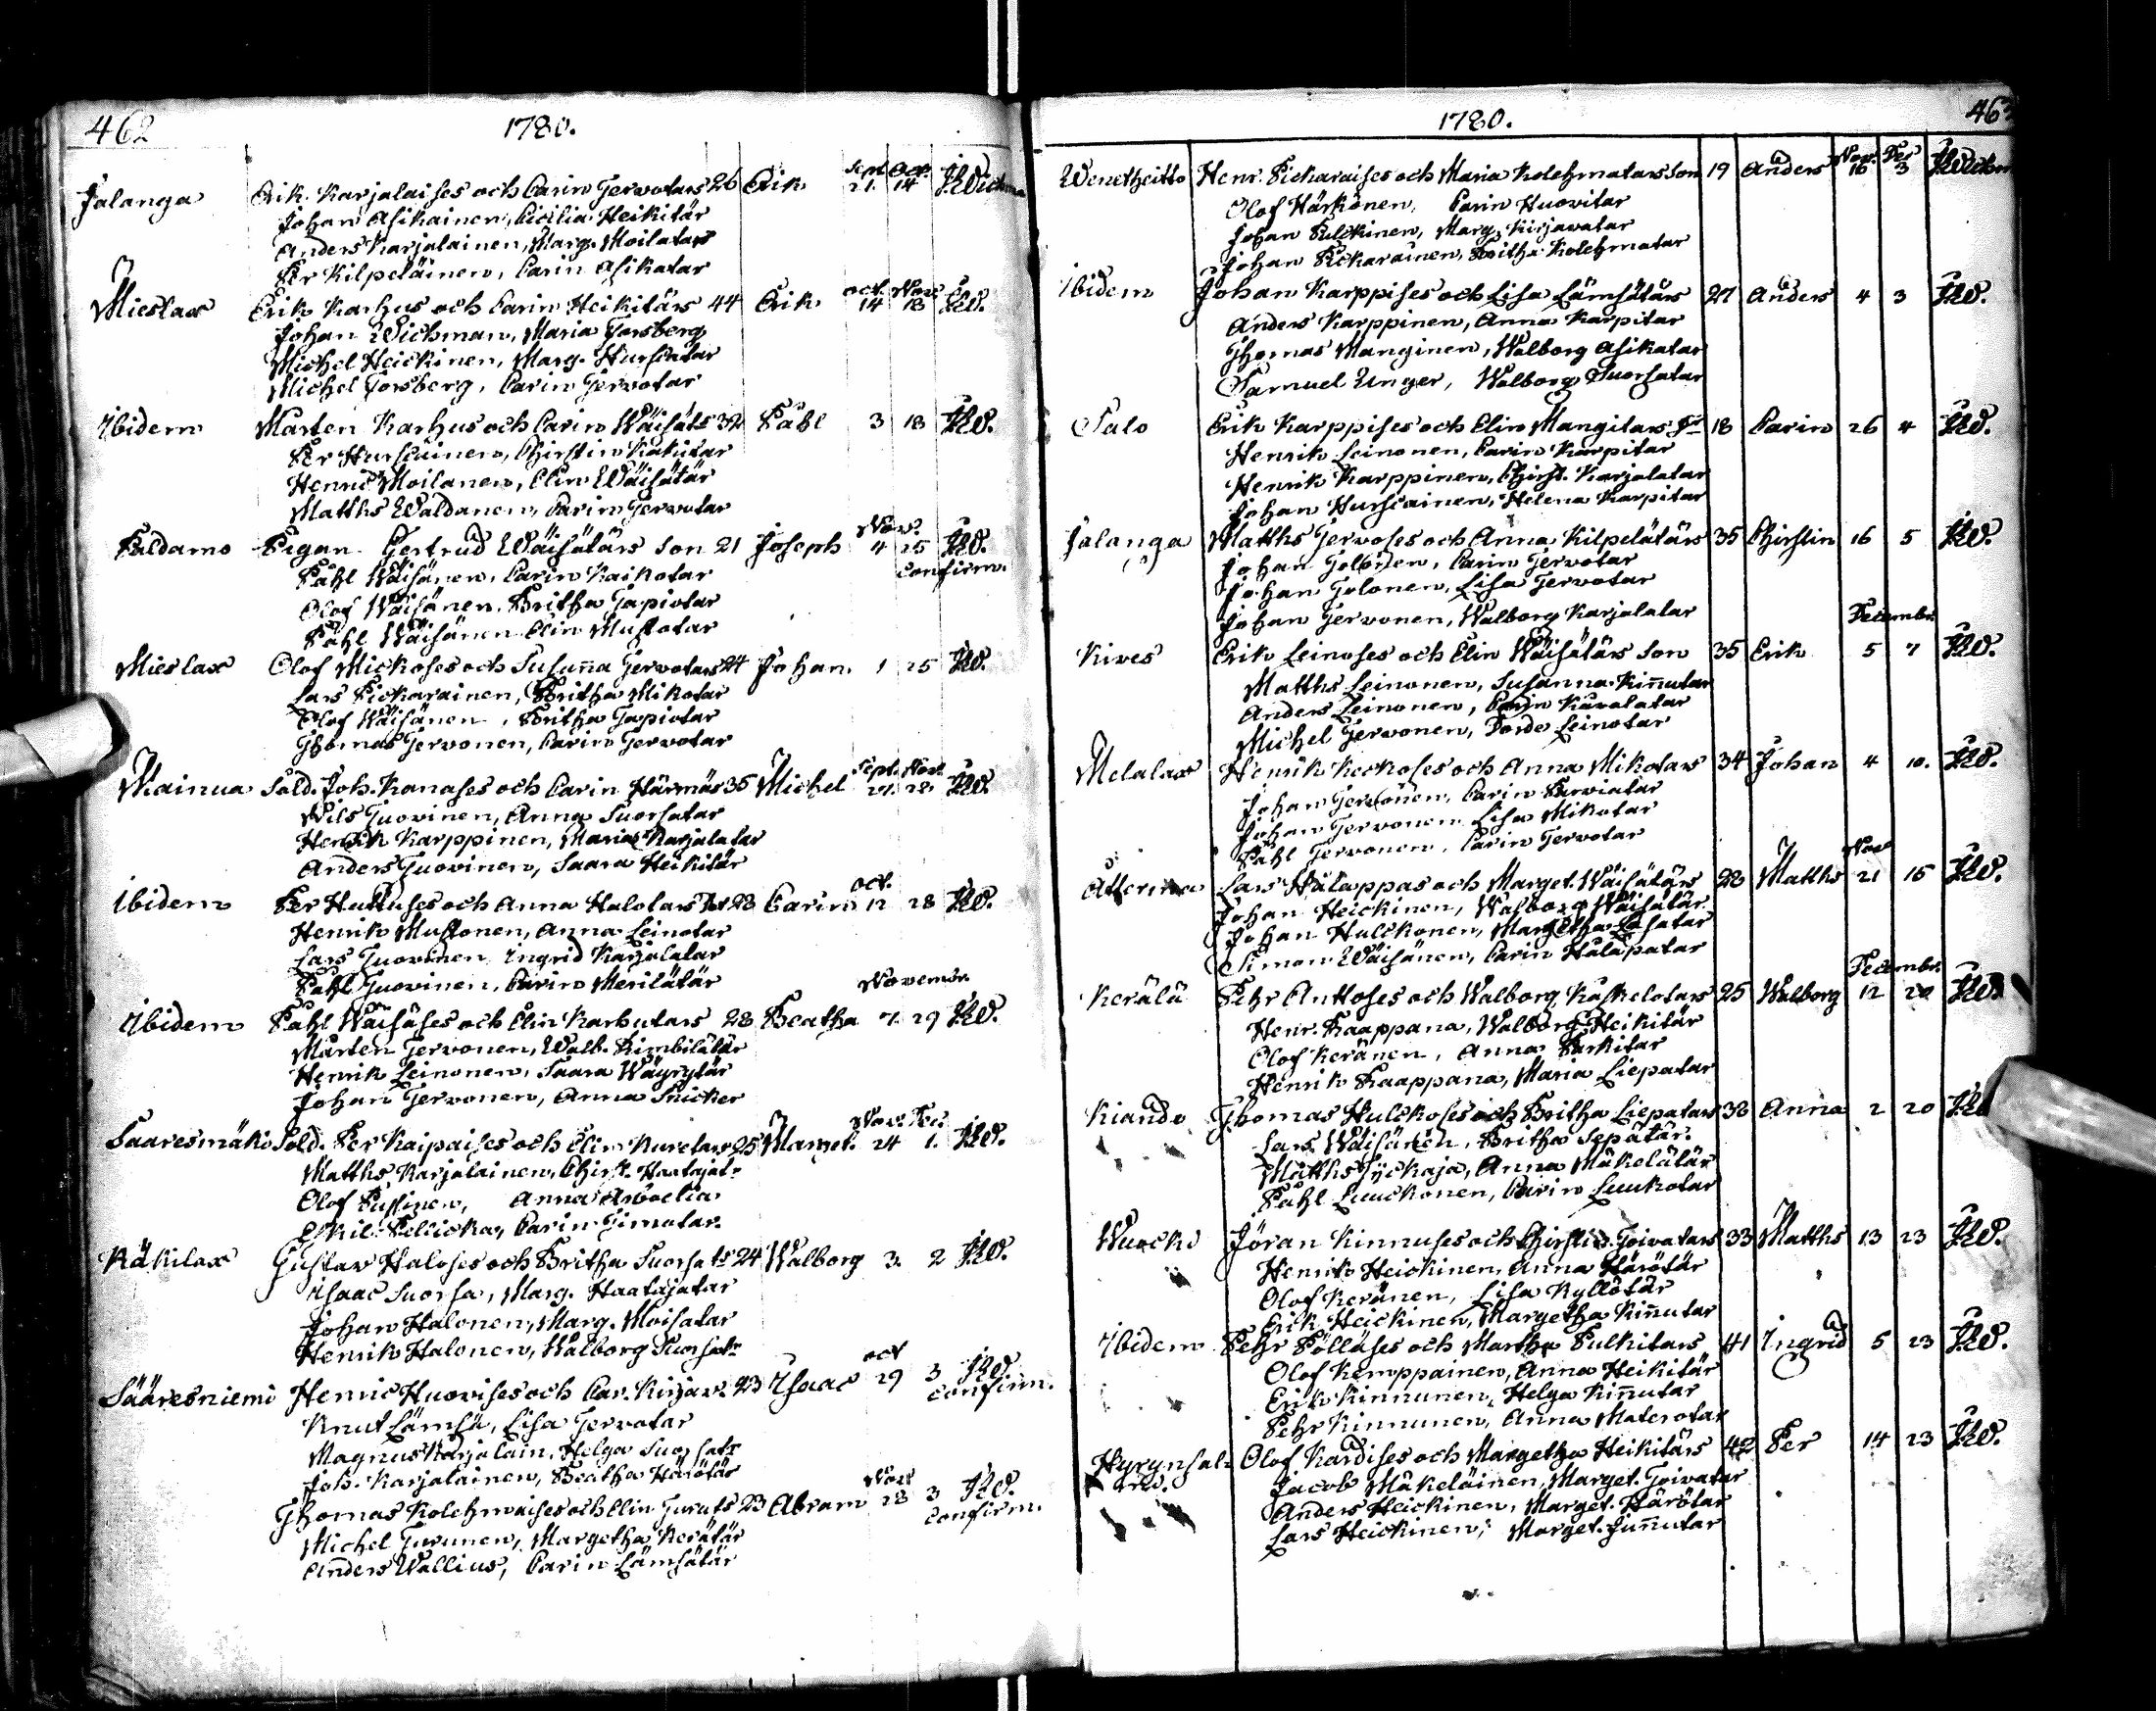 462 1780.
Sept. Oct.
Jalanga Erik Karjalaises och Carin Tervotars 26 Erik 21. 14 JWichma
Johan Asikainen, Cicilia Heikitär
Anders Karjalainen, Marg. Moilatar
Per Kilpeläinen, Carin Asikatar
oct. Nov.
Mieslax Erik Karhus och Carin Heikitärs 44 Erik 14 18 JW.
Johan Wichman, Maria Forsberg
Michel Heickinen, Marg. Hurscatar
Michel Forsberg, Carin Tervotar
Ibidem Mårten Karhus och Carin Wäisäts 32 Påhl 3 18 JW.
Per Hurscainen, Chirstin
Henric Moilanen, Elin Wäisätär
Matths Waldanen, Carin Tervotar
Nov.
Paldamo Pigan Gertrud Wäisätärs Son 21 Joseph 4 25 JW.
Påhl Wäisänen, Carin Kaikotar confirm.
Olof Wäisänen, Britha Tapiotar
Påhl Wäisänen Elin Mustotar
Mieslax Olof Mickoses och Susanna Tervotars 24 Johan 1 25 JW.
Lars Pickarainen, Britha Mikotar
Olof Wäisänen, Britha Tapiotar
Thomas Tervonen, Carin Tervotar
Sept. Nov.
Mainua Sold. Joh. Kanases och Carin Härmäs 35 Michel 27. 28. JW.
Nils Juovinen, Anna Suorsatar
Henrik Karppinen, Maria Karjalatar
Anders Juovinen, Saara Heikitär
oct.
Ibidem Per Huttuses och Anna Halotars 28 Carin 12 28 JW.
Henrik Mustonen, Anna Leinotar
Lars Juovinen Ingrid Karjalatar
Påhl Juovinen, Carin Merilätär
Novembr.
Ibidem Påhl Wäisäses och Elin Karhutars 28 Beatha 7. 29 JW.
Mårten Tervonen, Walb. Rimbilätär
Henrik Leinonen, Saara Wäyrytär
Johan Tervonen, Anna Snicker
Nov. Dec.
Saaresmäki Sold. Per Kaipaises och Elin Kuretars 25 Marget. 24 1. JW.
Matths Karjalainen, Chirst. Haatajatr
Olof Pussinen, Anna Arvoelia
Eskil Pellicka, Carin Timotar.
Käkilax Gustav Haloses och Britha Suorsats 24 Walborg 3. 2 JW.
Isaac Suorsa, Marg. Haatajatar
Johan Halonen, Marg. Moisatar
Henrik Halonen, Walborg Suorsatr
oct
Sääresniemi Henric Huovises och Car. Kirjav. 23 Isaac 29 3 JW.
confirm.
Knut Lämsä, Lisa Tervotar
Magnus Karjalain. Helga Suorsatr
Joh. Karjalainen, Beatha Härötär
Nov.
Thomas Kolehmaises och Elin Turuts 23 Abram 28 3 JW.
confirm.
Michel Turunen, Margetha Kerätär
Anders Wallius, Carin Lämsätär
1780. 463
Nov. Dec
Wenetheitto Henr. Pickaraises och Maria Kolehmatars Son 19 Anders 16 3 JWichm
Olof Härkönen, Carin Huovitar
Johan Pulckinen, Marg. Kirjavatar
Johan Pickarainen, Britha Kolehmatar
Ibidem Johan Karppises och Lisa Lämsätärs 27 Anders 4 3 JW.
Anders Karppinen, Anna Karpitar
Thomas Manginen, Walborg Asikatar
Samuel Unger, Walborg Suorsatar
Salo Erik Karppises och Elin Mangitars 18 Carin 26 4 JW.
Henrik Leinonen, Carin Karpitar
Henrik Karppinen, Chirst. Karjalatar
Johan Hurscainen, Helena Karpitar
Jalanga Matths Tervoses och Anna Kilpelätärs 35 Chirstin 16 5 JW.
Johan Tolonen, Carin Tervotar
Johan Tolonen, Lisa Tervotar
Johan Tervonen, Walborg Karjalatar
Decembr.
Kives Erik Leinoses och Elin Wäisätärs Son 35 Erik 5 7 JW.
Matths Leinonen, Susanna Kinnutar
Anders Leinonen, Carin Karalatar
Michel Tervonen, Dorde Leinotar
Melalax Henrik Keckoses och Anna Mikotars 34 Johan 4 10. JW.
Johan Tervonen, Carin Parviatar
Johan Tervonen Lisa Mikotar
Påhl Tervonen, Carin Tervotar
Nov
Lars Hälappas och Marget. Wäisätärs 28 Matths 21 15 JW.
Johan Heickinen, Walborg Wäisätär
Johan Hulckonen, Margetha
Simon Wäisänen, Carin Haläpatar
Decembr.
Kerälä Pehr Anttoses och Walborg Kaskelotars 25 Walborg 12 20 JW.
Henr. Kaappana, Walborg Heikitär
Olof Keränen, Anna Parkitar
Henrik Kaappana, Maria Liepatar
Kiando Thomas Hulckoses och Britha Liepatars 38 Anna 2 20 JW
Lars Wäisänen, Britha Sepätär.
Matths Jyckaja, Anna Mäkelätär
Påhl Luuckonen, Carin Luukotar
Wuocki Jöran Kinnuses och Chirstin Toivatars 33 Matths 13 23 JW.
Henrik Heickinen Anna Härötär
Olof Keränen, Lisa Kyllötär
Erik Heickinen, Margetha Kinnutar
Ibidem Pehr Pölläses och Martha Pulkitars 41 Ingrid 5 23 JW.
Olof Kemppainen, Anna Heikitär
Erik Kinnunen, Helga Kinnutar
Pehr Kinnunen, Anna Materotar
Hyrynsal Olof Kardises och Margetha Heikitärs 42 Per 14 23 JW.
Jacob Mäkeläinen, Marget. Toivatar
Anders Heickinen, Marget. Härötär
Lars Heickinen, Marget. Junnutar